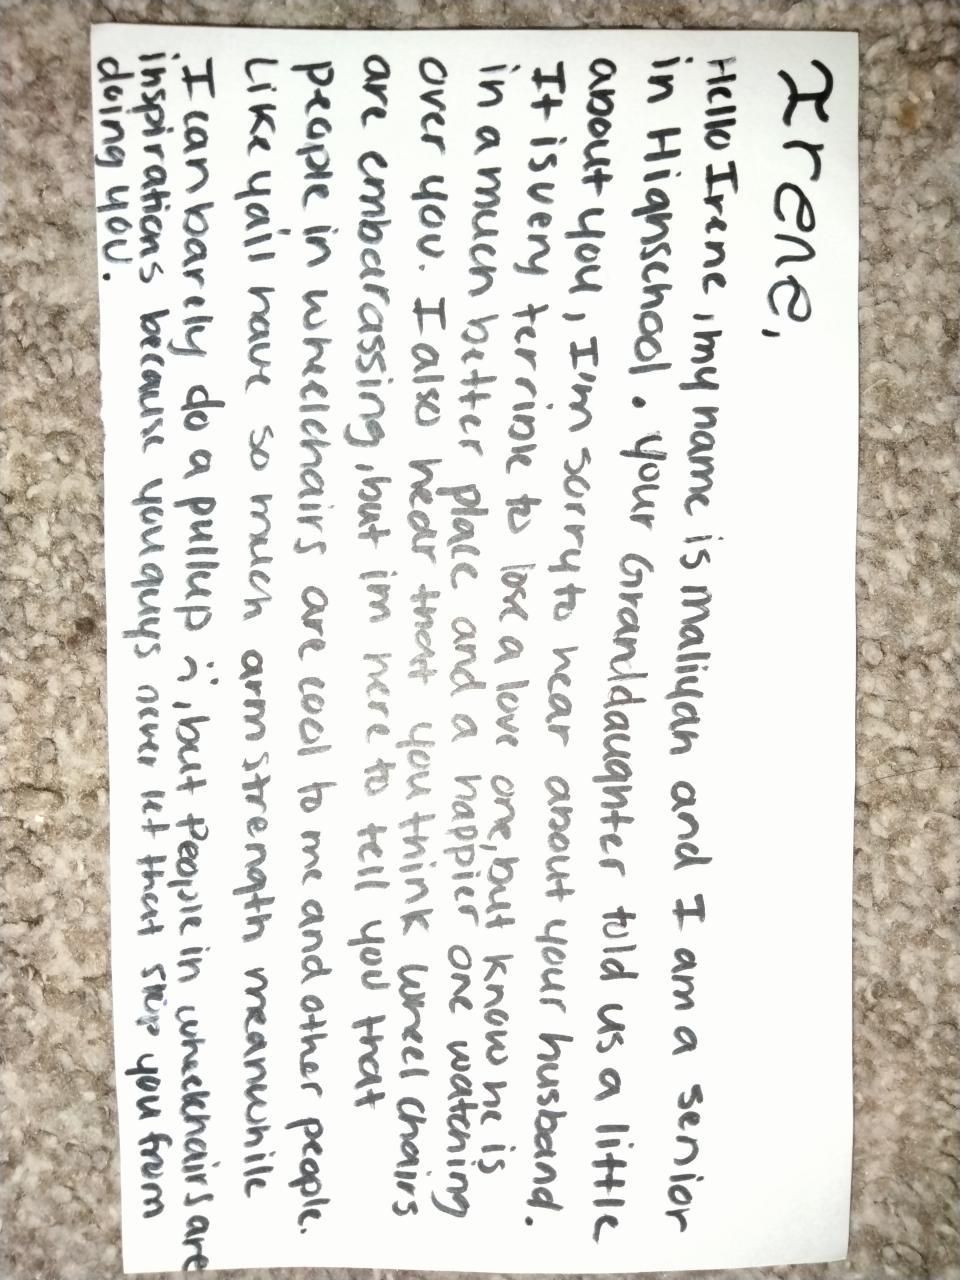 Irene,
Hello Irene, my name is maliyah and I am a senior
in Highschool. your Granddaughter told us a little
about you, I'm sorry to hear about your husband.
It is very terrible to lose a love one, but know he is
in a much better place and a happier one watching
over you. I also hear that you think wheel chairs
are embarassing, but im here to tell you that
people in wheelchairs are cool to me and other people.
Like yall have so much arm strength meanwhile
I can barely do a pullup :, but people in wheelchairs are
inspirations because you guys never let that stop you from
doing you.